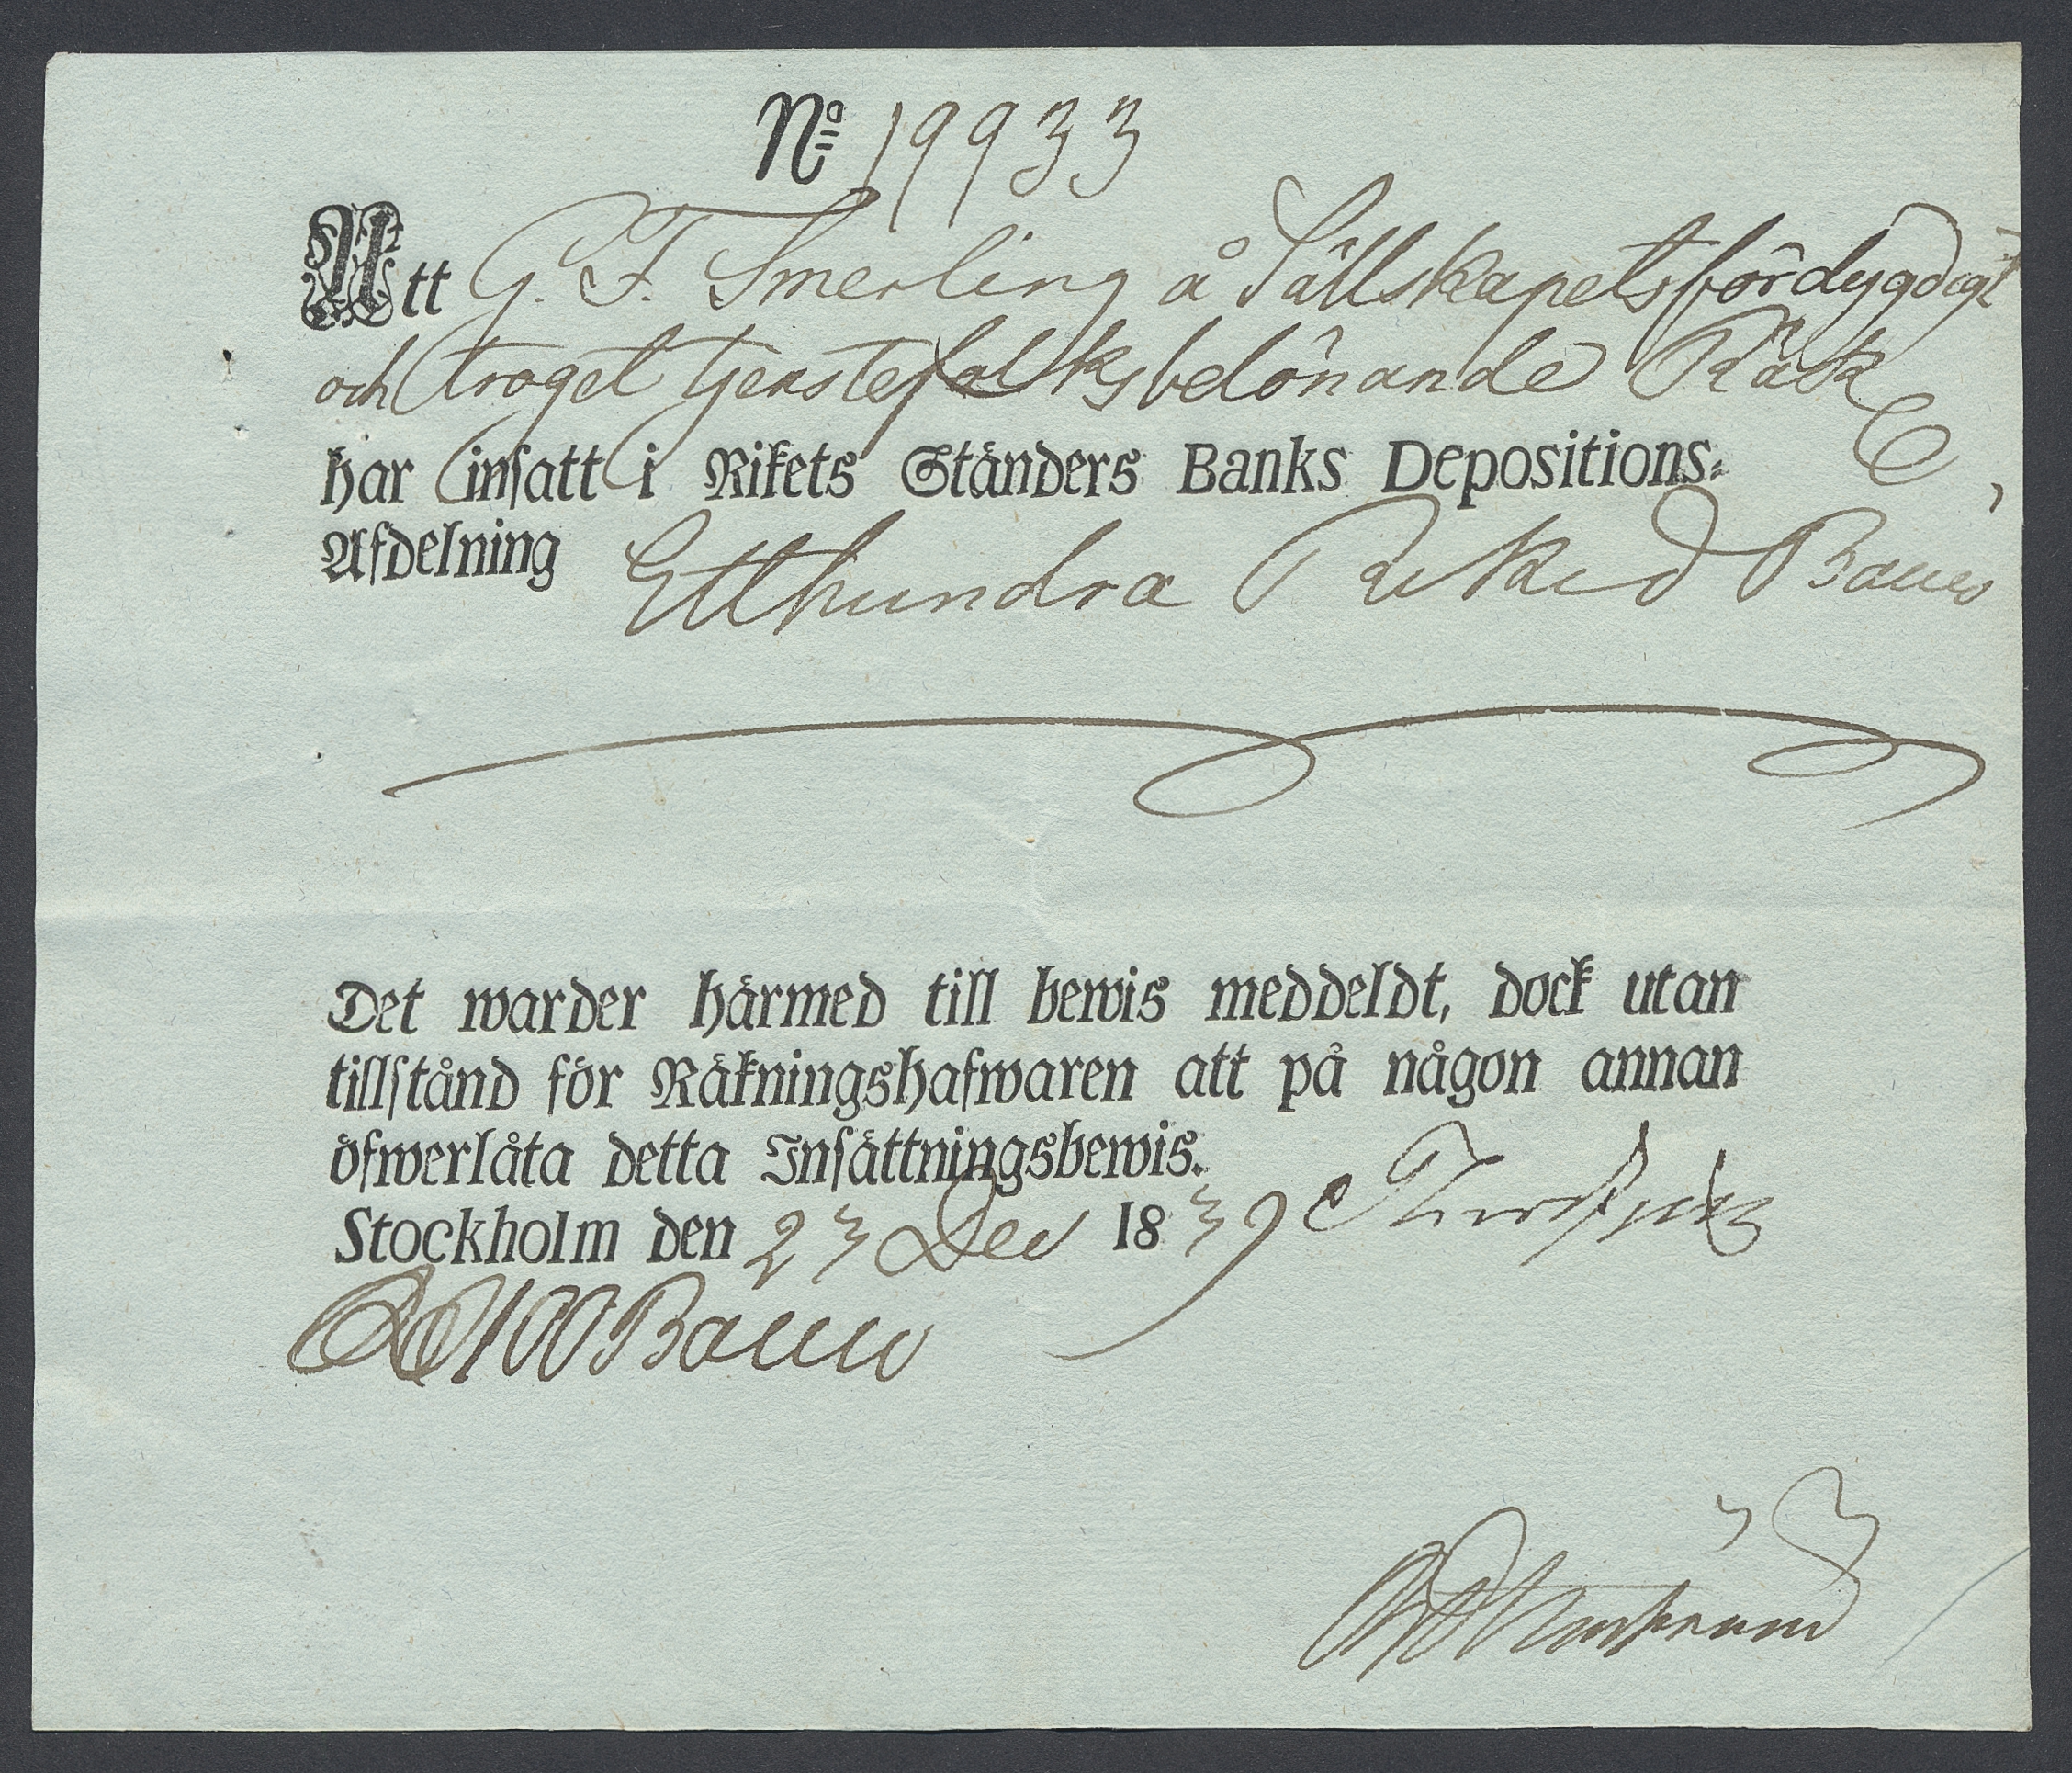 No 19933
Att G. F. Smerling å Sällskapets för dygdigt
och troget tjenstefolks belönande Räk
har insatt i Rikets Ständers Banks Depositions-
Afdelning Etthundra Rd Banco
Det warder härmed till bewis meddeldt, dock utan
tillstånd för Räkningshafwaren att på någon annan
öfwerlåta detta Insättningsbewis.
Stockholm den 23 Dec 1839
100 Banco